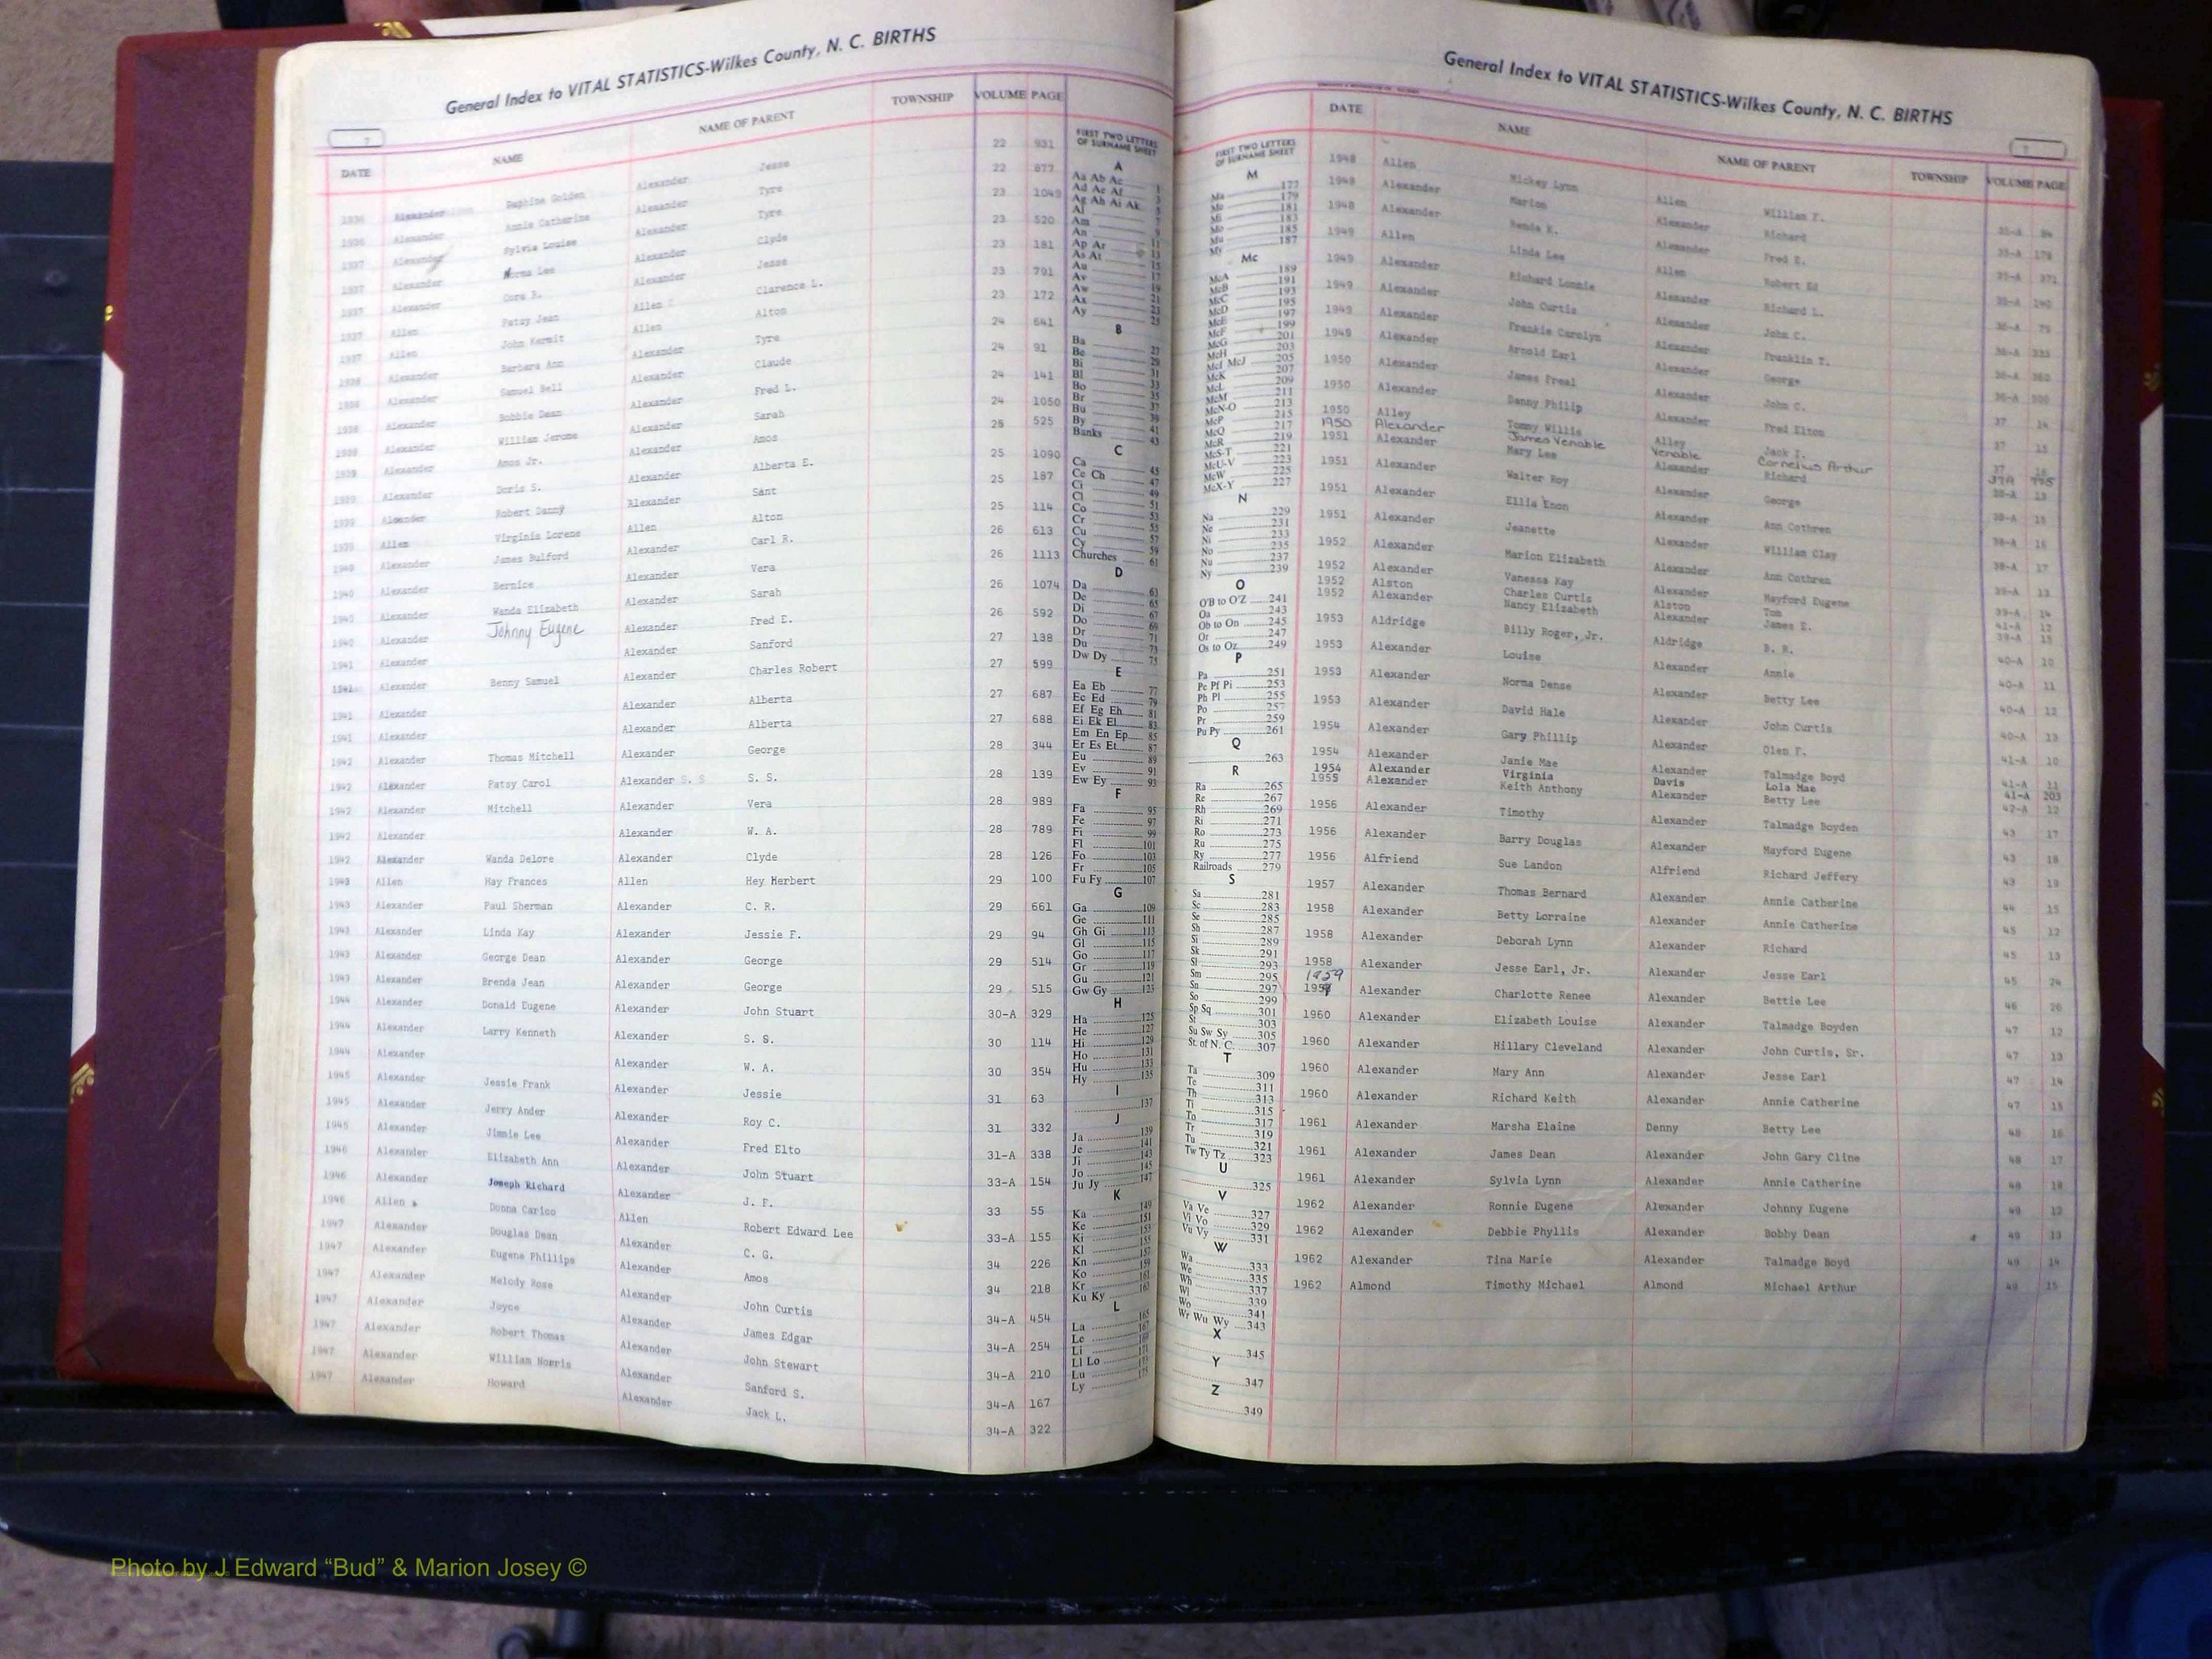 General Index to VITAL STATISTICS-Wilkes County, N. C. BIRTHS
7
DATE NAME NAME OF PARENT TOWNSHIP VOLUME PAGE
1936 Alexander Daphine Golden Alexander Jesse 22 931
1936 Alexander Annie Catherine Alexander Tyre 22 877
1937 Alexander Sylvia Louise Alexander Tyre 23 1049
1937 Alexander Norma Lee Alexander Clyde 23 520
1937 Alexander Cora R. Alexander Jesse 23 181
1937 Allen Patsy Jean Allen Clarence L. 23 791
1937 Allen John Kermit Allen Alton 23 172
1938 Alexander Barbara Ann Alexander Tyre 24 641
Alexander Samuel Bell Alexander Claude 24 91
1938 Alexander Bobbie Dean Alexander Fred L. 24 141
Alexander William Jerome Alexander Sarah 24 1050
1939 Alexander Amos Jr. Alexander Amos 25 525
1939 Alexander Doris S. Alexander Alberta E. 25 1090
1939 Alexander Robert Danny Alexander Sant 25 187
1939 Allen Virginia Lorene Allen Alton 25 114
1940 Alexander James Bulford Alexander Carl R. 26 613
1940 Alexander Bernice Alexander Vera 26 1113
1940 Alexander Wanda Elizabeth Alexander Sarah 26 1074
1940 Alexander Johnny Eugene Alexander Fred E. 26 592
1941 Alexander Alexander Sanford 27 138
1941 Alexander Benny Samuel Alexander Charles Robert 27 599
1941 Alexander Alexander Alberta 27 687
1941 Alexander Alexander Alberta 27 688
1942 Alexander Thomas Mitchell Alexander George 28 344
1942 Alexander Patsy Carol Alexander S. S. 28 139
1942 Alexander Mitchell Alexander Vera 28 989
1942 Alexander Alexander W. A. 28 789
1942 Alexander Wanda Delore Alexander Clyde 28 126
1943 Allen Hay Frances Allen Hey Herbert 29 100
1943 Alexander Paul Sherman Alexander C. R. 29 661
1943 Alexander Linda Kay Alexander Jessie F. 29 94
1943 Alexander George Dean Alexander George 29 514
1943 Alexander Brenda Jean Alexander George 29 515
1944 Alexander Donald Eugene Alexander John Stuart 30-A 329
1944 Alexander Larry Kenneth Alexander S. S. 30 114
1944 Alexander Alexander W. A. 30 354
1945 Alexander Jessie Frank Alexander Jessie 31 63
1945 Alexander Jerry Ander Alexander Roy C. 31 332
1945 Alexander Jimmie Lee Alexander Fred Elto 31-A 338
1946 Alexander Elizabeth Ann Alexander John Stuart 33-A 154
1946 Alexander Joseph Richard Alexander J. F. 33 55
1946 Allen Donna Carico Allen Robert Edward Lee 33-A 155
1947 Alexander Douglas Dean Alexander C. G. 34 226
1947 Alexander Eugene Phillips Alexander Amos 34 218
1947 Alexander Melody Rose Alexander John Curtis 34-A 454
1947 Alexander Joyce Alexander James Edgar 34-A 254
1947 Alexander Robert Thomas Alexander John Stewart 34-A 210
1947 Alexander William Norris Alexander Sanford S. 34-A 167
1947 Alexander Howard Alexander Jack L. 34-A 322
FIRST TWO LETTERS
OF SURNAME SHEET
A
Aa Ab Ac 1
Ad Ae Af 3
Ag Ah Ai Ak 5
Al 7
Am 9
An 11
Ap Ar 13
As At 15
Au 17
Av 19
Aw 21
Ax 23
Ay 25
B
Ba 27
Be 29
Bi 31
Bl 33
Bo 35
Br 37
Bu 39
By 41
Banks 43
C
Ca 45
Ce Ch 47
Ci 49
Cl 51
Co 53
Cr 55
Cu 57
Cy 59
Churches 61
D
Da 63
De 65
Di 67
Do 69
Dr 71
Du 73
Dw Dy 75
E
Ea Eb 77
Ec Ed 79
Ef Eg Eh 81
Ei Ek El 83
Em En Ep 85
Er Es Et 87
Eu 89
Ev 91
Ew Ey 93
F
Fa 95
Fe 97
Fi 99
Fl 101
Fo 103
Fr 105
Fu Fy 107
G
Ga 109
Ge 111
Gh Gi 113
Gl 115
Go 117
Gr 119
Gu 121
Gw Gy 123
H
Ha 125
He 127
Hi 129
Ho 131
Hu 133
Hy 135
I
137
J
Ja 139
Je 141
Ji 143
Jo 145
Ju Jy 147
K
Ka 149
Ke 151
Ki 153
Kl 155
Kn 157
Ko 159
Kr 161
Ku Ky 163
L
La 165
Le 167
Li 169
Ll Lo 171
Lu 173
Ly 175
General Index to VITAL STATISTICS-Wilkes County, N. C. BIRTHS
7
FIRST TWO LETTERS
OF SURNAME SHEET
M
Ma 177
Me 179
Mi 181
Mo 183
Mu 185
My 187
Mc
McA 189
McB 191
McC 193
McD 195
McE 197
McF 199
McG 201
McH 203
McI McJ 205
McK 207
McL 209
McM 211
McN-O 213
McP 215
McQ 217
McR 219
McS-T 221
McU-V 223
McW 225
McX-Y 227
N
Na 229
Ne 231
Ni 233
No 235
Nu 237
Ny 239
O
O'B to O'Z 241
Oa 243
Ob to On 245
Or 247
Os to Oz 249
P
Pa 251
Pe Pf Pi 253
Ph Pl 255
Po 257
Pr 259
Pu Py 261
Q
263
R
Ra 265
Re 267
Rh 269
Ri 271
Ro 273
Ru 275
Ry 277
Railroads 279
S
Sa 281
Sc 283
Se 285
Sh 287
Si 289
Sk 291
Sl 293
Sm 295
Sn 297
So 299
Sp Sq 301
St 303
Su Sw Sy 305
St. of N. C. 307
T
Ta 309
Te 311
Th 313
Ti 315
To 317
Tr 319
Tu 321
Tw Ty Tz 323
U
325
V
Va Ve 327
Vi Vo 329
Vu Vy 331
W
Wa 333
We 335
Wh 337
Wi 339
Wo 341
Wr Wu Wy 343
X
345
Y
347
Z
349
DATE NAME NAME OF PARENT TOWNSHIP VOLUME PAGE
1948 Allen Mickey Lynn Allen William F. 35-A 84
1948 Alexander Marion Alexander Richard 35-A 178
1948 Alexander Renda K. Alexander Fred E. 35-A 371
1949 Allen Linda Lee Allen Robert Ed
1949 Alexander Richard Lonnie Alexander Richard L. 36-A 79
1949 Alexander John Curtis Alexander John C. 36-A 335
1949 Alexander Frankie Carolyn Alexander Franklin T. 36-A 360
1949 Alexander Arnold Earl Alexander George 36-A
1950 Alexander James Freal Alexander John C. 37 14
1950 Alexander Danny Philip Alexander Fred Elton 37 15
1950 Alley Tommy Willis Alley Jack I. 37 16
1950 Alexander James Venable Venable Cornelius Arthur 37A 995
1951 Alexander Mary Lee Alexander Richard 38-A 13
1951 Alexander Walter Roy Alexander George 38-A 15
1951 Alexander Ellis Enon Alexander Ann Cothren 38-A 16
1951 Alexander Jeanette Alexander William Clay 38-A 17
1952 Alexander Marion Elizabeth Alexander Ann Cothren 39-A 13
1952 Alexander Vanessa Kay Alexander Mayford Eugene 39-A 14
1952 Alston Charles Curtis Alston Tom 41-A 12
1952 Alexander Nancy Elizabeth Alexander James E. 39-A 15
1953 Aldridge Billy Roger, Jr. Aldridge B. R. 40-A 10
1953 Alexander Louise Alexander Annie 40-A 11
1953 Alexander Norma Dense Alexander Betty Lee 40-A 12
1953 Alexander David Hale Alexander John Curtis 40-A 13
1954 Alexander Gary Phillip Alexander Olen F. 41-A 10
1954 Alexander Janie Mae Alexander Talmadge Boyd 41-A 11
1954 Alexander Virginia Davis Lola Mae 41-A 203
1955 Alexander Keith Anthony Alexander Betty Lee 42-A 12
1956 Alexander Timothy Alexander Talmadge Boyden 43 17
1956 Alexander Barry Douglas Alexander Mayford Eugene 43 18
1956 Alfriend Sue Landon Alfriend Richard Jeffery 43 19
1957 Alexander Thomas Bernard Alexander Annie Catherine 44 15
1958 Alexander Betty Lorraine Alexander Annie Catherine 45 12
1958 Alexander Deborah Lynn Alexander Richard 45 13
1958 Alexander Jesse Earl, Jr. Alexander Jesse Earl 45 24
1959
1959 Alexander Charlotte Renee Alexander Bettie Lee 46 26
1960 Alexander Elizabeth Louise Alexander Talmadge Boyden 47 12
1960 Alexander Hillary Cleveland Alexander John Curtis, Sr. 47 13
1960 Alexander Mary Ann Alexander Jesse Earl 47 14
1960 Alexander Richard Keith Alexander Annie Catherine 47 15
1961 Alexander Marsha Elaine Denny Betty Lee 48 16
1961 Alexander James Dean Alexander John Gary Cline 48 17
1961 Alexander Sylvia Lynn Alexander Annie Catherine 48 18
1962 Alexander Ronnie Eugene Alexander Johnny Eugene 49 12
1962 Alexander Debbie Phyllis Alexander Bobby Dean 49 13
1962 Alexander Tina Marie Alexander Talmadge Boyd 49 14
1962 Almond Timothy Michael Almond Michael Arthur 49 15
Photo by J Edward “Bud” & Marion Josey ©